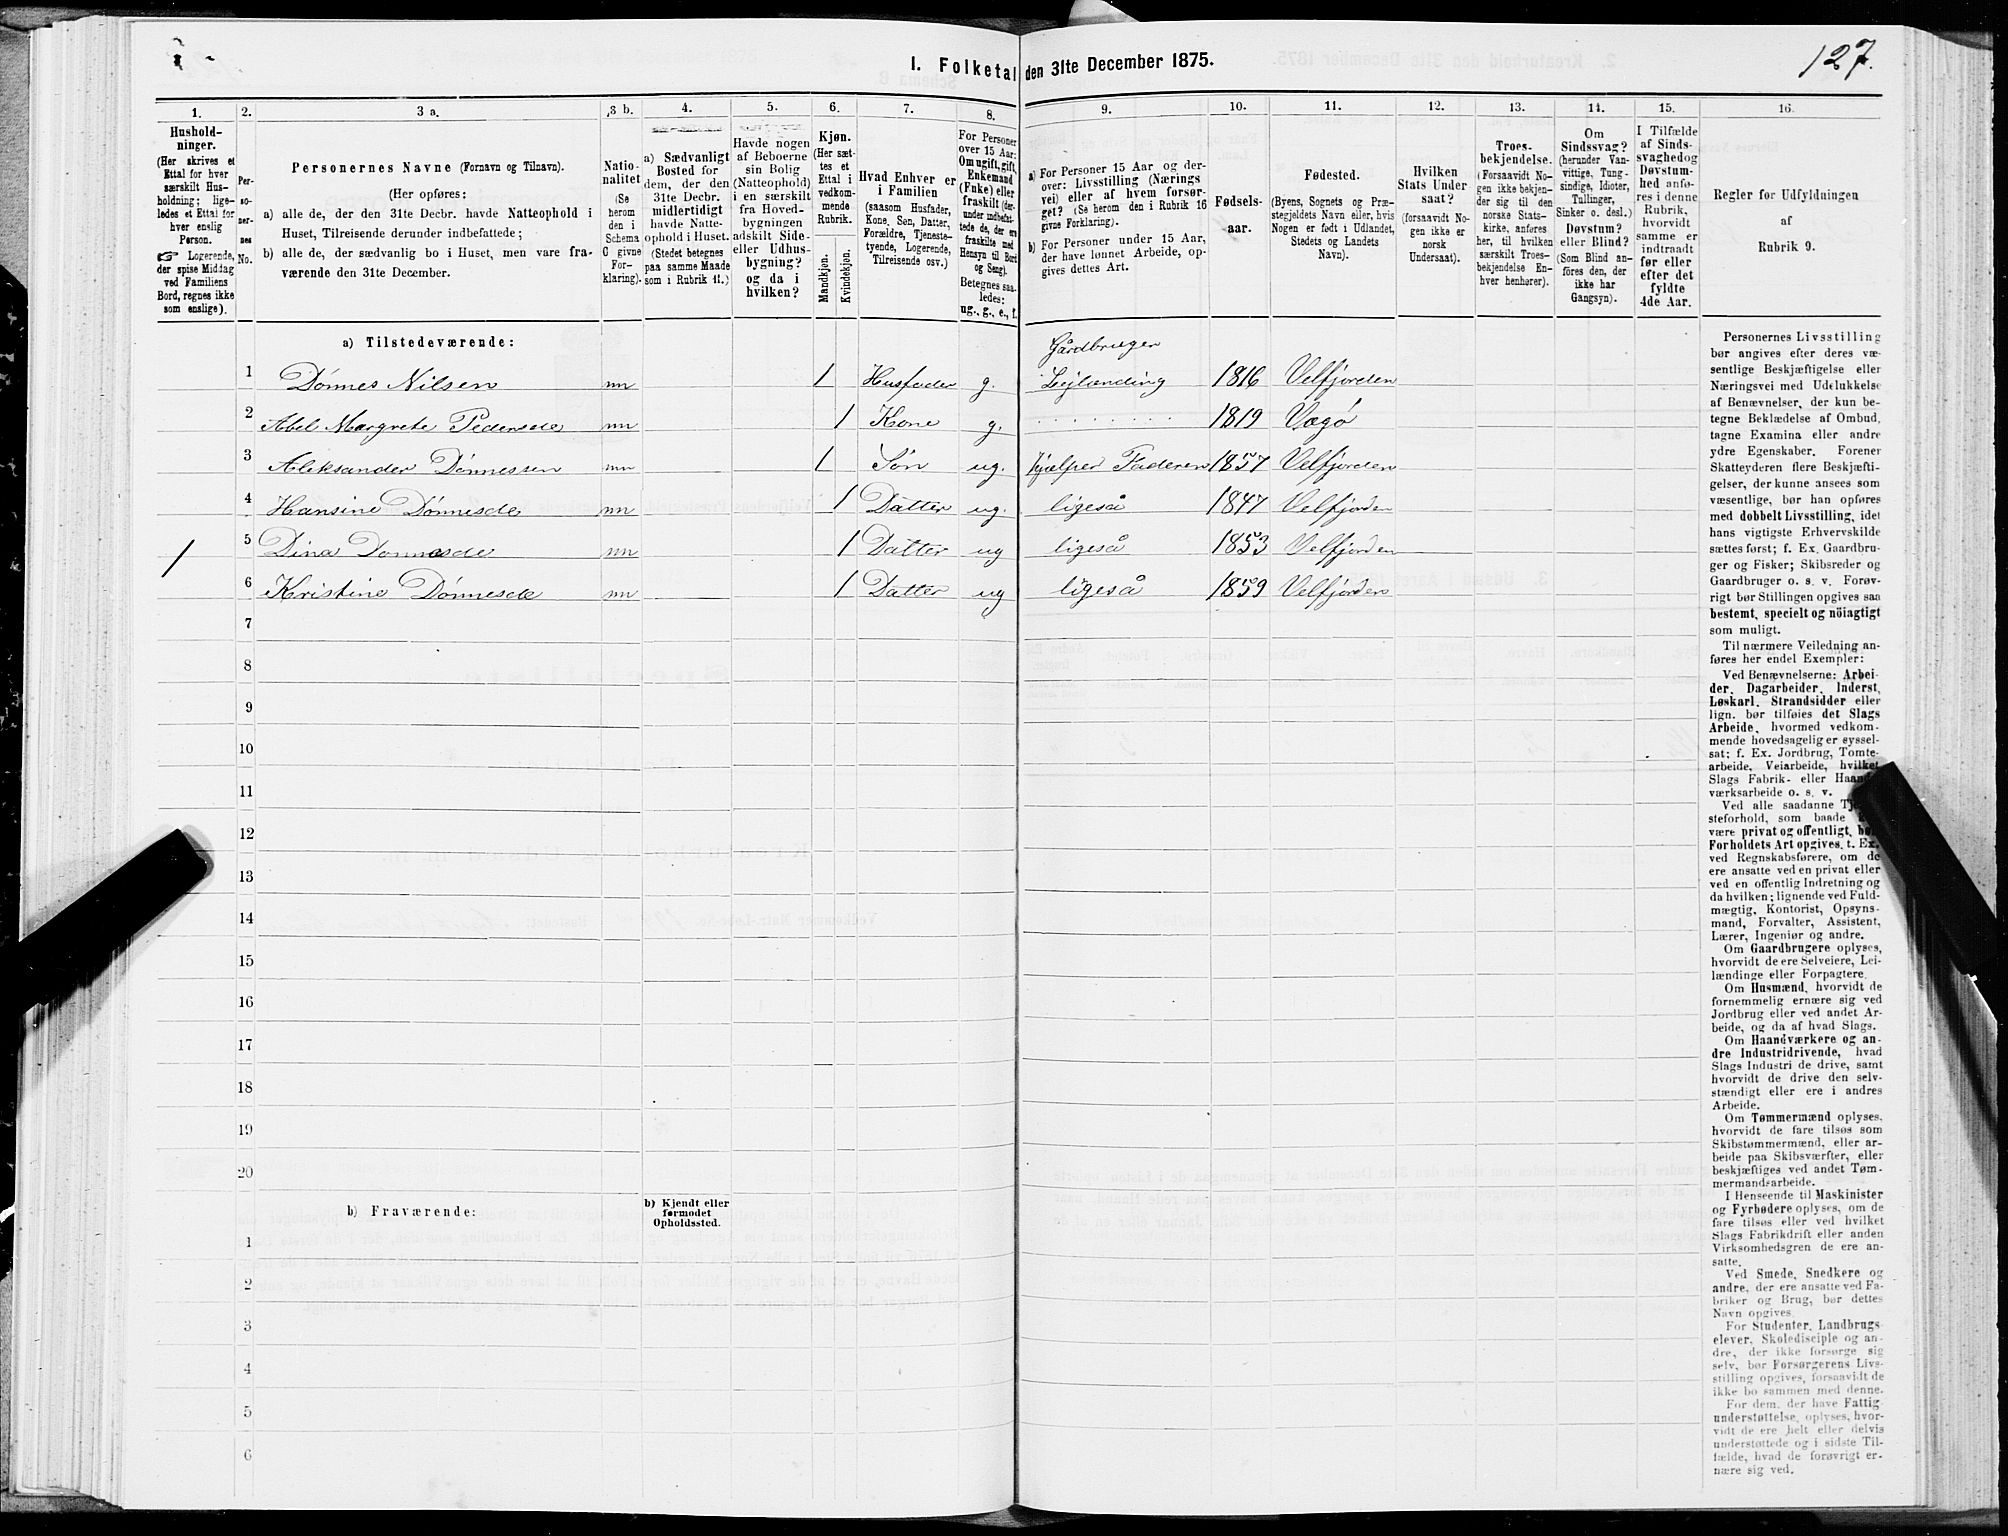 127.
I. Folketal den 31te December 1875.
1. 2. 3 a. 3 b. 4. 5. 6. 7. 8. 9. 10. 11. 12. 13. 14. 15. 16.
Hushold-
ninger.
(Her skrives et
Ettal for hver
særskilt Hus-
holdning; lige-
ledes et Ettal for
hver enslig
Person.
☞ Logerende,
der spise Middag
ved Familiens
Bord, regnes ikke
som enslige).
Per-
so-
ner-
nes
No.
Personernes Navne (Fornavn og Tilnavn).
(Her opføres:
a) alle de, der den 31te Decbr. havde Natteophold i
Huset, Tilreisende derunder indbefattede;
b) alle de, der sædvanlig bo i Huset, men vare fra-
værende den 31te December.
Natio-
nalitet
(Se
herom
den i
Schema
C givne
For-
klaring).
a) Sædvanligt
Bosted for
dem, der den
31te Decbr.
midlertidigt
havde Natte-
ophold i Huset.
(Stedet betegnes
paa samme Maade
som i Rubrik 11.)
Havde nogen
af Beboerne
sin Bolig
(Natteophold)
i en særskilt
fra Hoved-
bygningen
adskilt Side-
eller Udhus-
bygning?
og da i
hvilken?
Kjøn.
(Her sæt-
tes et
Ettal i
vedkom-
mende
Rubrik.
Mandkjøn.
Kvindekjøn.
Hvad Enhver er
i Familien
(saasom Husfader,
Kone, Søn, Datter,
Forældre, Tjeneste-
tyende, Logerende,
Tilreisende osv.)
For Personer
over 15 Aar:
Om ugift, gift,
Enkemand
(Enke) eller
fraskilt (der-
under indbefat-
tede de, der ere
fraskilte med
Hensyn til Bord
og Seng).
Betegnes saa-
ledes:
ug., g., e., f.
a) For Personer 15 Aar og der-
over: Livsstilling (Nærings
vei) eller af hvem forsør-
get? (Se herom den i Rubrik 16
givne Forklaring).
b) For Personer under 15 Aar,
der have lønnet Arbeide, op-
gives dettes Art.
Fødsels-
aar.
Fødested.
(Byens, Sognets og Præ-
stegjeldets Navn eller, hvis
Nogen er født i Udlandet,
Stedets og Landets
Navn).
Hvilken
Stats Under
saat?
(forsaavidt No-
gen ikke er
norsk
Undersaat).
Troes-
bekjendelse.
(Forsaavidt No-
gen ikke bekjen-
der sig til den
norske Stats-
kirke, anføres
her, til hvilken
særskilt Troes-
bekjendelse En-
hver henhører).
Om
Sindssvag?
(herunder Van-
vittige, Tung-
sindige, Idioter,
Tullinger,
Sinker o. desl.)
Døvstum?
eller Blind?
(Som Blind an-
føres den, der
ikke har
Gangsyn).
I Tilfælde
af Sinds-
svaghedog
Døvstum-
hed anfø-
res i denne
Rubrik,
hvorvidt
samme er
indtraadt
før eller
efter det
fyldte
4de Aar.
Regler for Udfyldningen
af
Rubrik 9.
a) Tilstedeværende:
Gårdbruger
1 Dønnes Nilsen nn 1 Husfader g. Lejlænding 1816 Velfjorden
2 Abel Margrete Pedersde nn 1 Kone g. 1819 Vægø
3 Aleksander Dønnessen nn 1 Søn ug. Hjælper Faderen 1857 Velfjorden
4 Hansine Dønnesde nn 1 Datter ug. ligeså 1847 Velfjorden
1 5 Dina Dønnesde nn 1 Datter ug ligeså 1853 Velfjorden
6 Kristine Dønnesde nn 1 Datter ug ligeså 1859 Velfjorden
7
8
9
10
11
12
13
14
15
16
17
18
19
20
b) Fraværende:
b) Kjendt eller
formodet
Opholdssted.
1
2
3
4
5
6
Personernes Livsstilling
bør angives efter deres væ-
sentlige Beskjæftigelse eller
Næringsvei med Udelukkelse
af Benævnelser, der kun be-
tegne Beklædelse af Ombud,
tagne Examina eller andre
ydre Egenskaber. Forener
Skatteyderen flere Beskjæfti-
gelser, der kunne ansees som
væsentlige, bør han opføres
med dobbelt Livsstilling, idet
hans vigtigste Erhvervskilde
sættes først; f. Ex. Gaardbru-
ger og Fisker; Skibsreder og
Gaardbruger o. s. v. Forøv-
rigt bør Stillingen opgives saa
bestemt, specielt og nöiagtigt
som muligt.
Til nærmere Veiledning an-
føres her endel Exempler:
Ved Benævnelserne: Arbei-
der, Dagarbeider, Inderst,
Løskarl, Strandsidder eller
lign. bør tilføies det Slags
Arbeide, hvormed vedkom-
mende hovedsagelig er syssel-
sat; f. Ex. Jordbrug, Tomte-
arbeide, Veiarbeide, hvilket
Slags Fabrik- eller Haand-
værksarbeide o. s. v.
Ved alle saadanne Tje-
steforhold, som baade
være privat og offentligt, bør
Forholdets Art opgives. t. Ex.
ved Regnskabsførere, om de
ere ansatte ved en privat eller
ved en offentlig Indretning og
da hvilken; lignende ved Fuld-
mægtig, Kontorist, Opsyns-
mand, Forvalter, Assistent,
Lærer, Ingeniør og andre.
Om Gaardbrugere oplyses,
hvorvidt de ere Selveiere, Lei-
lændinge eller Forpagtere.
Om Husmænd, hvorvidt de
fornemmelig ernære sig ved
Jordbrug eller ved andet Ar-
beide, og da af hvad Slags.
Om Haandværkere og an-
dre Industridrivende, hvad
Slags Industri de drive, samt
hvorvidt de drive den selv-
stændigt eller ere i andres
Arbeide.
Om Tømmermænd oplyses,
hvorvidt de fare tilsøs som
Skibstømmermænd, eller ar-
beide paa Skibsværfter, eller
beskjæftiges ved andet Tøm-
mermandsarbeide.
I Henseende til Maskinister
og Fyrbødere oplyses, om de
fare tilsøs eller ved hvilket
Slags Fabrikdrift eller anden
Virksomhedsgren de ere an-
satte.
Ved Smede, Snedkere og
andre, der ere ansatte ved Fa-
briker og Brug, bør dettes
Navn opgives.
For Studenter, Landbrugs-
elever, Skoledisciple og an-
dre, der ikke forsørge sig
selv, bør Forsørgerens Livs-
stilling opgives, forsaavidt de
ikke bo sammen med denne.
For dem, der have Fattig-
understøttelse, oplyses, hvor-
vidt de ere helt eller delvis
understøttede og i sidste Til-
fælde, hvad de forøvrigt er-
nære sig ved.